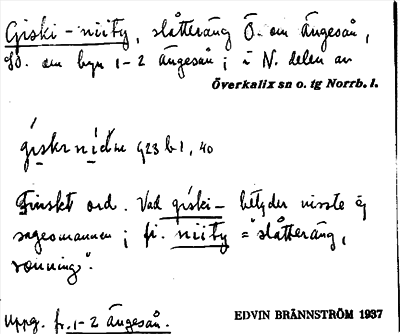 Giski-niity, slåtteräng Ö. om Ängesån,
SO. om byn 1-2 Ängesån; i N. delen av
Överkalix sn o. tg Norrb. l.
Finskt ord. Vad giski- betyder visste ej
sagesmannen; fi. niity = "slåtteräng,
rönning".
Uppg. fr. 1-2 Ängesån.
EDVIN BRÄNNSTRÖM 1937